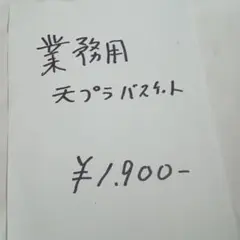 業務用
天プラバスケット
¥1.900-